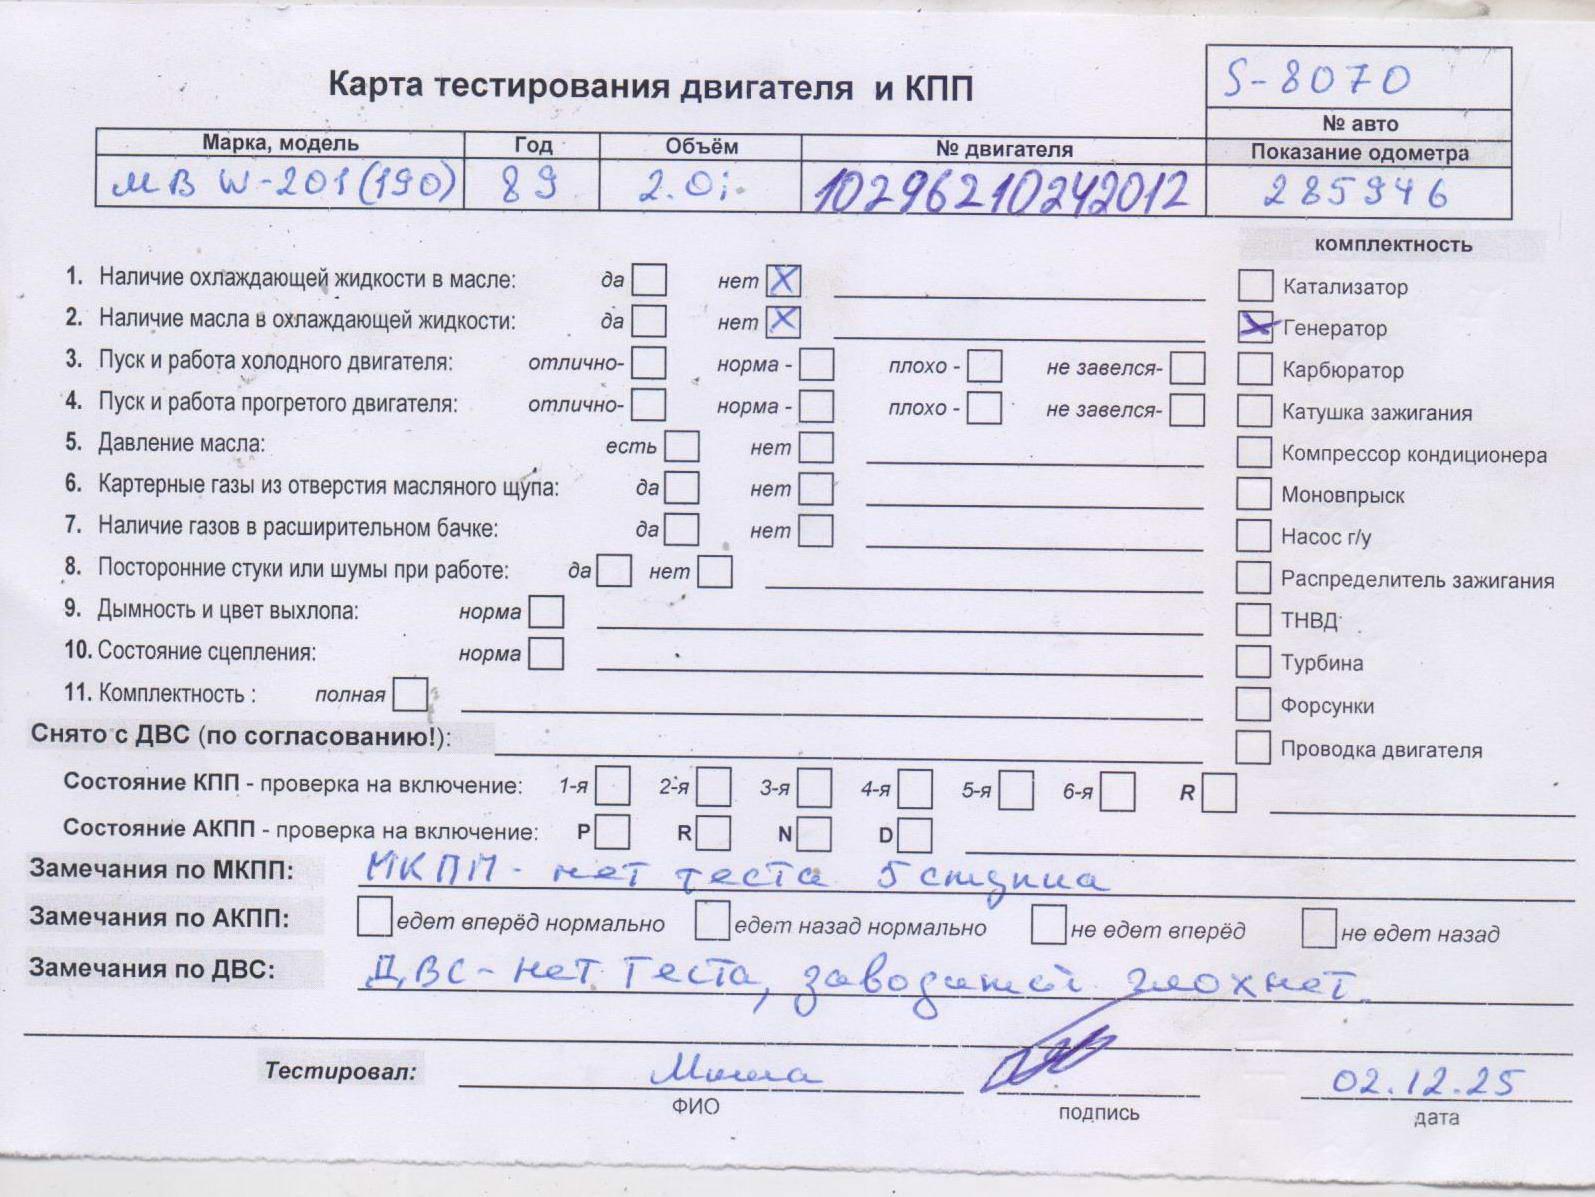 S-8070
Карта тестирования двигателя и КПП
№ авто
Марка, модель Год Объём № двигателя Показание одометра
МВ W-201(190) 89 2.0i 10296210242012 285946
комплектность
1. Наличие охлаждающей жидкости в масле: да нет X
Катализатор
2. Наличие масла в охлаждающей жидкости: да нет X
X Генератор
3. Пуск и работа холодного двигателя: отлично- норма - плохо - не завелся-
Карбюратор
4. Пуск и работа прогретого двигателя: отлично- норма - плохо - не завелся-
Катушка зажигания
5. Давление масла: есть нет
Компрессор кондиционера
6. Картерные газы из отверстия масляного щупа: да нет
Моновпрыск
7. Наличие газов в расширительном бачке: да нет
Насос г/у
8. Посторонние стуки или шумы при работе: да нет
Распределитель зажигания
9. Дымность и цвет выхлопа: норма
ТНВД
10. Состояние сцепления: норма
Турбина
11. Комплектность : полная
Форсунки
Снято с ДВС (по согласованию!):
Проводка двигателя
Состояние КПП - проверка на включение: 1-я 2-я 3-я 4-я 5-я 6-я R
Состояние АКПП - проверка на включение: P R N D
Замечания по МКПП: МКПП - нет теста 5 ступка
Замечания по АКПП: едет вперёд нормально едет назад нормально не едет вперёд не едет назад
Замечания по ДВС: ДВС - нет теста, глохнет.
Тестировал: Миша 02.12.25
ФИО подпись дата